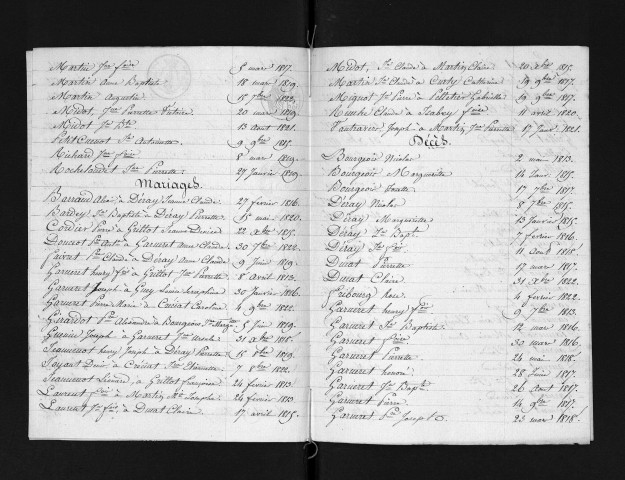 Martin Jph fçois 8 mars 1817.
Martin Anne Baptiste 18 mars 1819.
Martin Augustin 15 7bre 1822.
Midot, Jne Pierrette 20 mai 1819.
Midot Jh Bte 13 aout 1821.
Petit Cuenot Jh Antoinette 9 9bre 1815.
Richard Jph fçois 8 mars 1819.
Rochelandet Jne Pierrette 27 Janvier 1820.
Mariages.
Barraud Alexis à Déray Jeanne Claude 27 février 1816.
Bardey Jh Baptiste à Déray Pierrette 15 mai 1820.
Cordier Pierre à Grillot Jeanne Denise 22 Xbre 1815.
Doucot Pre Ante à Garneret Anne Claude 30 7bre 1822.
faivret Pre Claude à Déray Anne Claude 9 Juin 1819.
Garneret henry fçois à Grillot Jne Pierrette 8 avril 1812.
Garneret Joseph à Guy Louise Seraphine 30 Janvier 1816.
Garneret Pierre Marie à Cuviat Caroline 6 9bre 1822.
Girardot Jh Alexandre à Bourgeois Jne Marg. 5 Juin 1819.
Grenier Joseph à Garneret Jne Ursule 31 Xbre 1818.
Jeannenot henry Joseph à Déray Pierrette 15 7bre 1819.
Joyant Denis à Crévat Jne Etiennette 7 8bre 1822.
Jeannenot Simard à Grillot françoise 24 février 1813.
Laurent fçois à Martin Mie Josephe 24 février 1813.
Laurent Jh fçois à Ducat Claire 17 avril 1815.
Midot, Jh Claude à Martin Claire 20 Xbre 1815.
Martin Jh Claude à Carty Catherine 19 9bre 1817.
Mignot Jh Pierre à Pelletier Gabrielle 19 9bre 1817.
Claude à Isabey fçoise 11 avril 1820.
Vautravers Joseph à Martin Jne Pierrette 17 Janv. 1821.
Décès.
Bourgeois Nicolas 2 mai 1813.
Bourgeois Marguerite 14 Janv. 1815.
Bourgeois 17 7bre 1817.
Déray Nicolas 8 7bre 1815.
Déray Marguerite 13 Janvier 1815.
Déray Jh Bapte 7 février 1816.
Déray Jh fçois 11 Aout 1818.
Ducat Pierrette 17 mars 1817.
Ducat Claire 31 Xbre 1822.
fribourg 4 février 1822.
Garneret henry fçois 9 7bre 1813.
Garneret Jh Baptiste 12 mai 1816.
Garneret fçoise 30 mars 1816.
Garneret Pierrette 24 mai 1818.
Garneret honoré 28 Juin 1817.
Garneret Jh Bapte 26 Aout 1817.
Garneret Pierre 14 9bre 1817.
Garneret Pre Joseph 23 mars 1818.